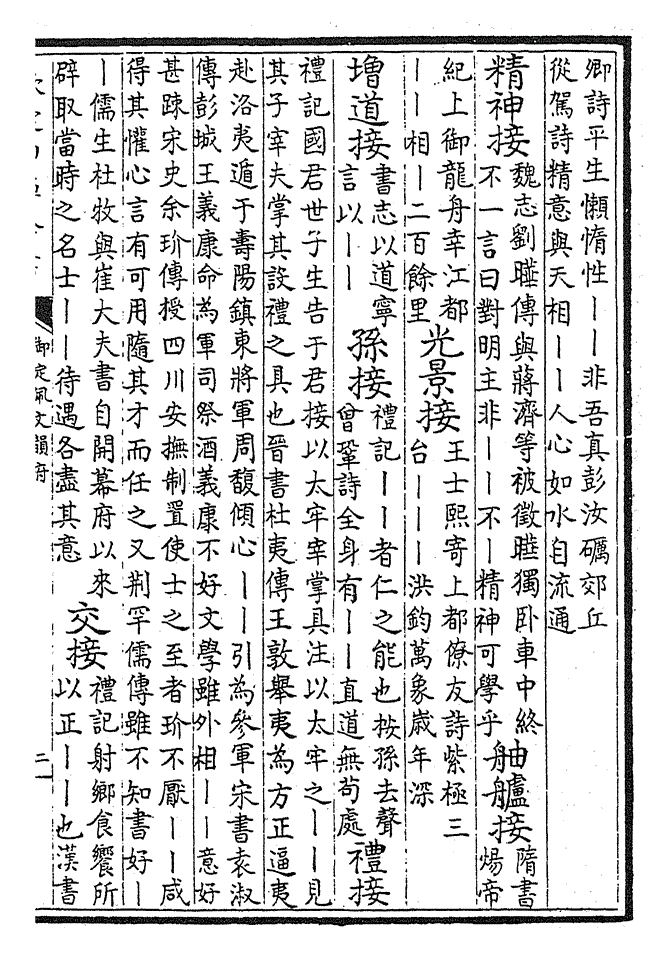 卿詩平生懶惰性丨丨非吾真彭汝礪郊丘
從駕詩精意與天相丨丨人心如水自流通
精神接
魏志劉曄傳與蔣濟等被徵曄獨卧車中終
不一言曰對明主非丨丨不丨精神可學乎
舳艫接
隋書
煬帝
紀上御龍舟幸江都
丨丨相丨二百餘里
光景接
王士熙寄上都僚友詩紫極三
台丨丨丨洪鈞萬象歳年深
増道接
書志以道寧
言以丨丨
孫接
禮記丨丨者仁之能也桉孫去聲
曾鞏詩全身有丨丨直道無苟處
禮接
禮記國君世子生告于君接以太牢宰掌具注以太牢之丨丨見
其子宰夫掌其設禮之具也晉書杜夷傳王敦舉夷為方正逼夷
赴洛夷遁于壽陽鎮東將軍周馥傾心丨丨引為參軍宋書袁淑
傳彭城王義康命為軍司祭酒義康不好文學雖外相丨丨意好
甚疎宋史余玠傳授四川安撫制置使士之至者玠不厭丨丨咸
得其懽心言有可用隨其才而任之又荆罕儒傳雖不知書好丨
丨儒生杜牧與崔大夫書自開幕府以來
辟取當時之名士丨丨待遇各盡其意
交接
禮記射鄉食饗所
以正丨丨也漢書
御定佩文韻府